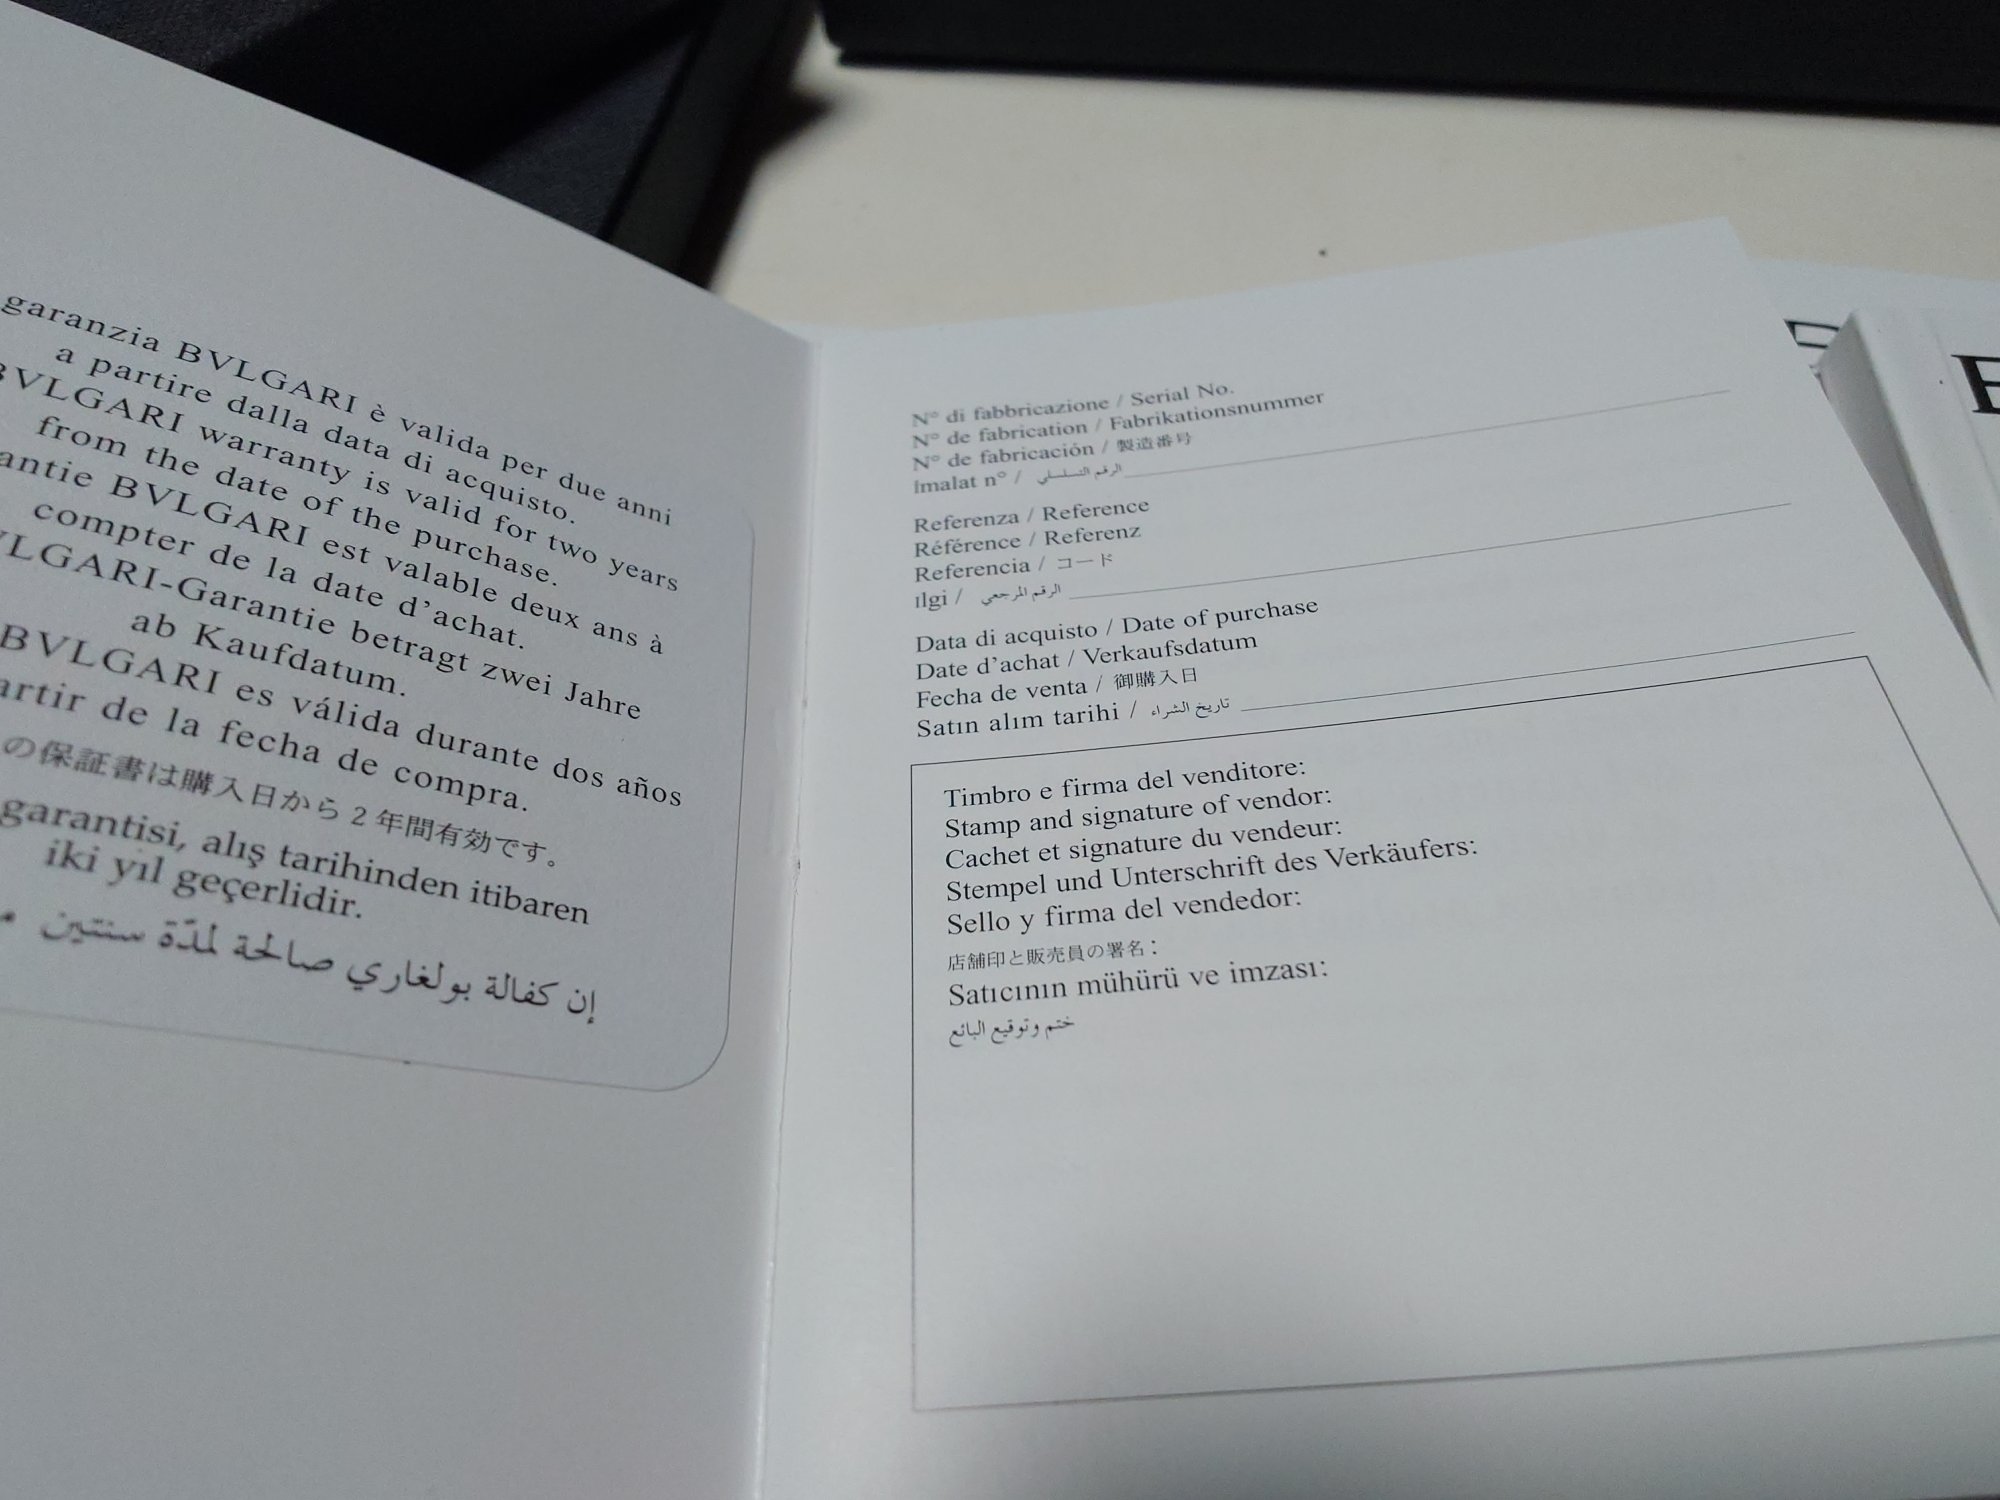 garanzia BVLGARI è valida per due anni
a partire dalla data di acquisto.
BVLGARI warranty is valid for two years
from the date of the purchase.
BVLGARI est valable deux ans à
compter de la date d'achat.
BVLGARI-Garantie betragt zwei Jahre
ab Kaufdatum.
BVLGARI es válida durante dos años
partir de la fecha de compra.
の保証書は購入日から2年間有効です。
garantisi, alış tarihinden itibaren
iki yıl geçerlidir.
إن كفالة بولغاري صالحة لمدّة سنتين
N° di fabbricazione / Serial No.
N° de fabrication / Fabrikationsnummer
N° de fabricación / 製造番号
İmalat n° / الرقم التسلسلي
Referenza / Reference
Référence / Referenz
Referencia / コード
ılgi / الرقم المرجعي
Data di acquisto / Date of purchase
Date d'achat / Verkaufsdatum
Fecha de venta / 御購入日
Satın alım tarihi / تاريخ الشراء
Timbro e firma del venditore:
Stamp and signature of vendor:
Cachet et signature du vendeur:
Stempel und Unterschrift des Verkäufers:
Sello y firma del vendedor:
店舗印と販売員の署名：
Satıcının mühürü ve imzası:
ختم وتوقيع البائع